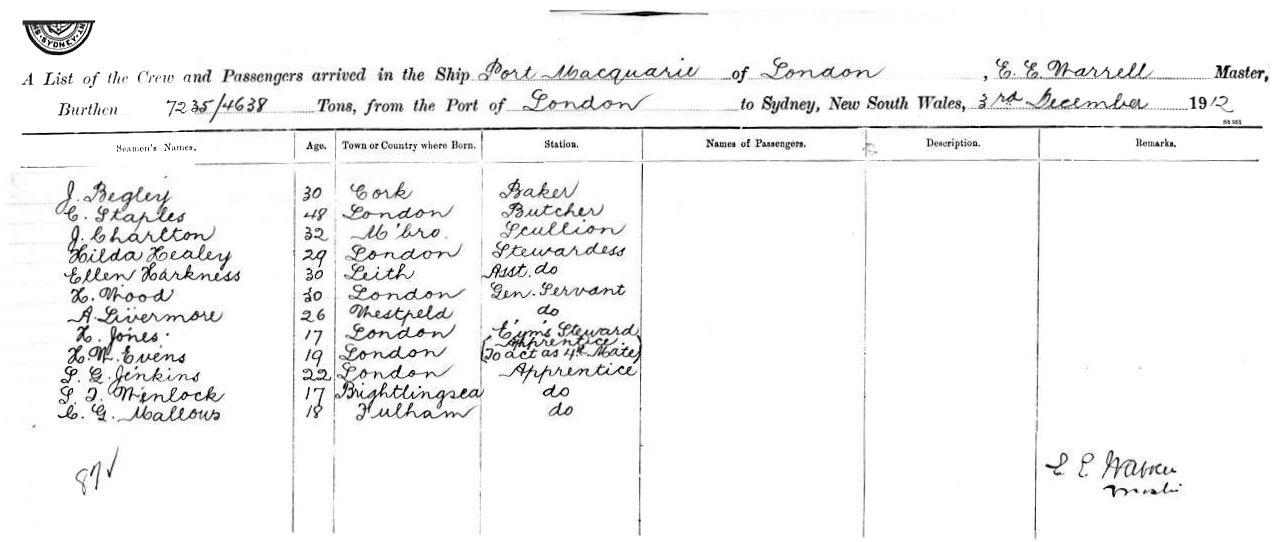 SYDNEY
A List of the Crew and Passengers arrived in the Ship Port Macquarie of London, E. E. Warrell Master,
Burthen 7235/4638 Tons, from the Port of London to Sydney, New South Wales, 3rd December 1912
Seamen's Names. Age. Town or Country where Born. Station. Names of Passengers. Description. Remarks.
J. Begley 30 Cork Baker
C. Staples 48 London Butcher
J. Charlton 32 M'bro. Scullion
Hilda Healey 29 London Stewardess
Ellen Harkness 30 Leith Asst. do
H. Wood 30 London Gen. Servant
A. Livermore 26 Westfeld do
H. Jones. 17 London E'gm's Steward
H. W. Evens 19 London (Apprentice To act as 4th Mate)
S. G. Jenkins 22 London Apprentice
S. J. Wenlock 17 Brightlingsea do
C. G. Mallows 18 Fulham do
87
E E